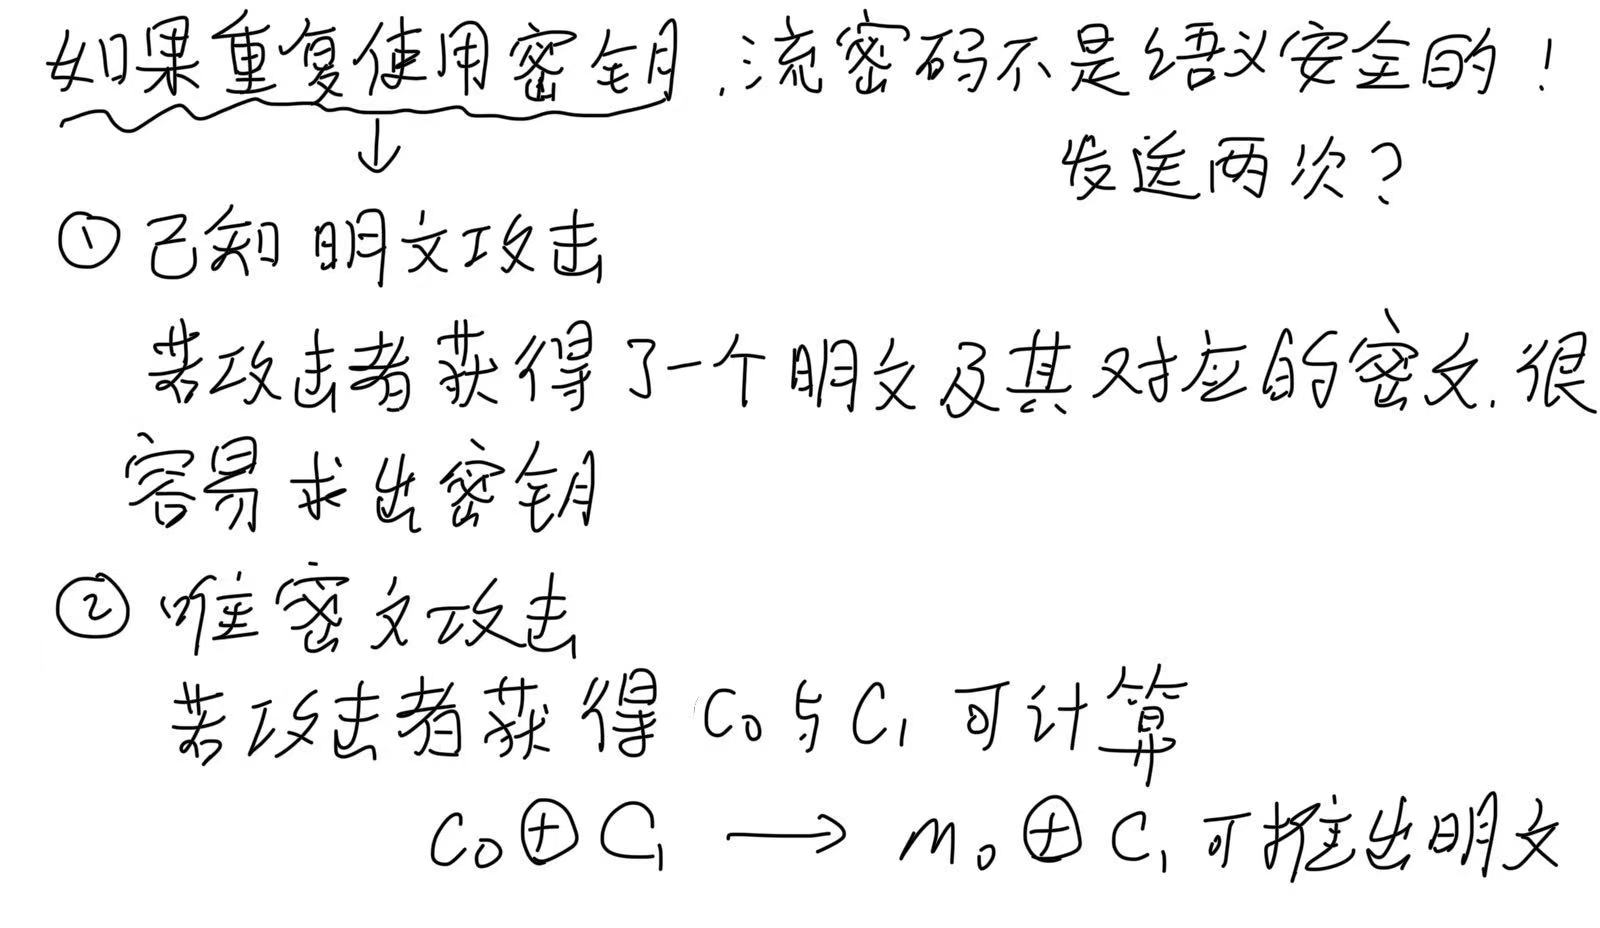 如果重复使用密钥,流密码不是语义安全的!
发送两次?
① 已知明文攻击
若攻击者获得了一个明文及其对应的密文,很
容易求出密钥
② 唯密文攻击
若攻击者获得 C₀与C₁ 可计算
C₀⊕C₁ → m₀⊕C₁ 可推出明文